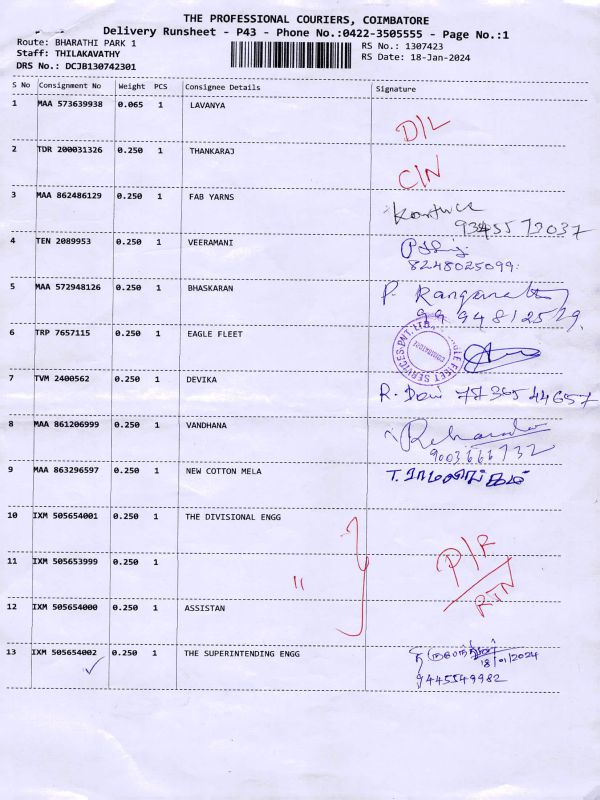 THE PROFESSIONAL COURIERS, COIMBATORE
Delivery Runsheet - P43 - Phone No.:0422-3505555 - Page No.:1
Route: BHARATHI PARK 1 RS No.: 1307423
Staff: THILAKAVATHY RS Date: 18-Jan-2024
DRS No.: DCJB130742301
S No Consignment No Weight PCS Consignee Details Signature
1 MAA 573639938 0.065 1 LAVANYA
D/L
2 TDR 200031326 0.250 1 THANKARAJ
C/N
3 MAA 862486129 0.250 1 FAB YARNS
4 TEN 2089953 0.250 1 VEERAMANI
8248025099
5 MAA 572948126 0.250 1 BHASKARAN P.
99 948 12529.
6 TRP 7657115 0.250 1 EAGLE FLEET
7 TVM 2400562 0.250 1 DEVIKA R. Devi 77 365 44657
8 MAA 861206999 0.250 1 VANDHANA
9003666732
9 MAA 863296597 0.250 1 NEW COTTON MELA T.
10 IXM 505654001 0.250 1 THE DIVISIONAL ENGG
11 IXM 505653999 0.250 1 " P/R
RTN
12 IXM 505654000 0.250 1 ASSISTAN
13 IXM 505654002 0.250 1 THE SUPERINTENDING ENGG
18/01/2024
9445549982